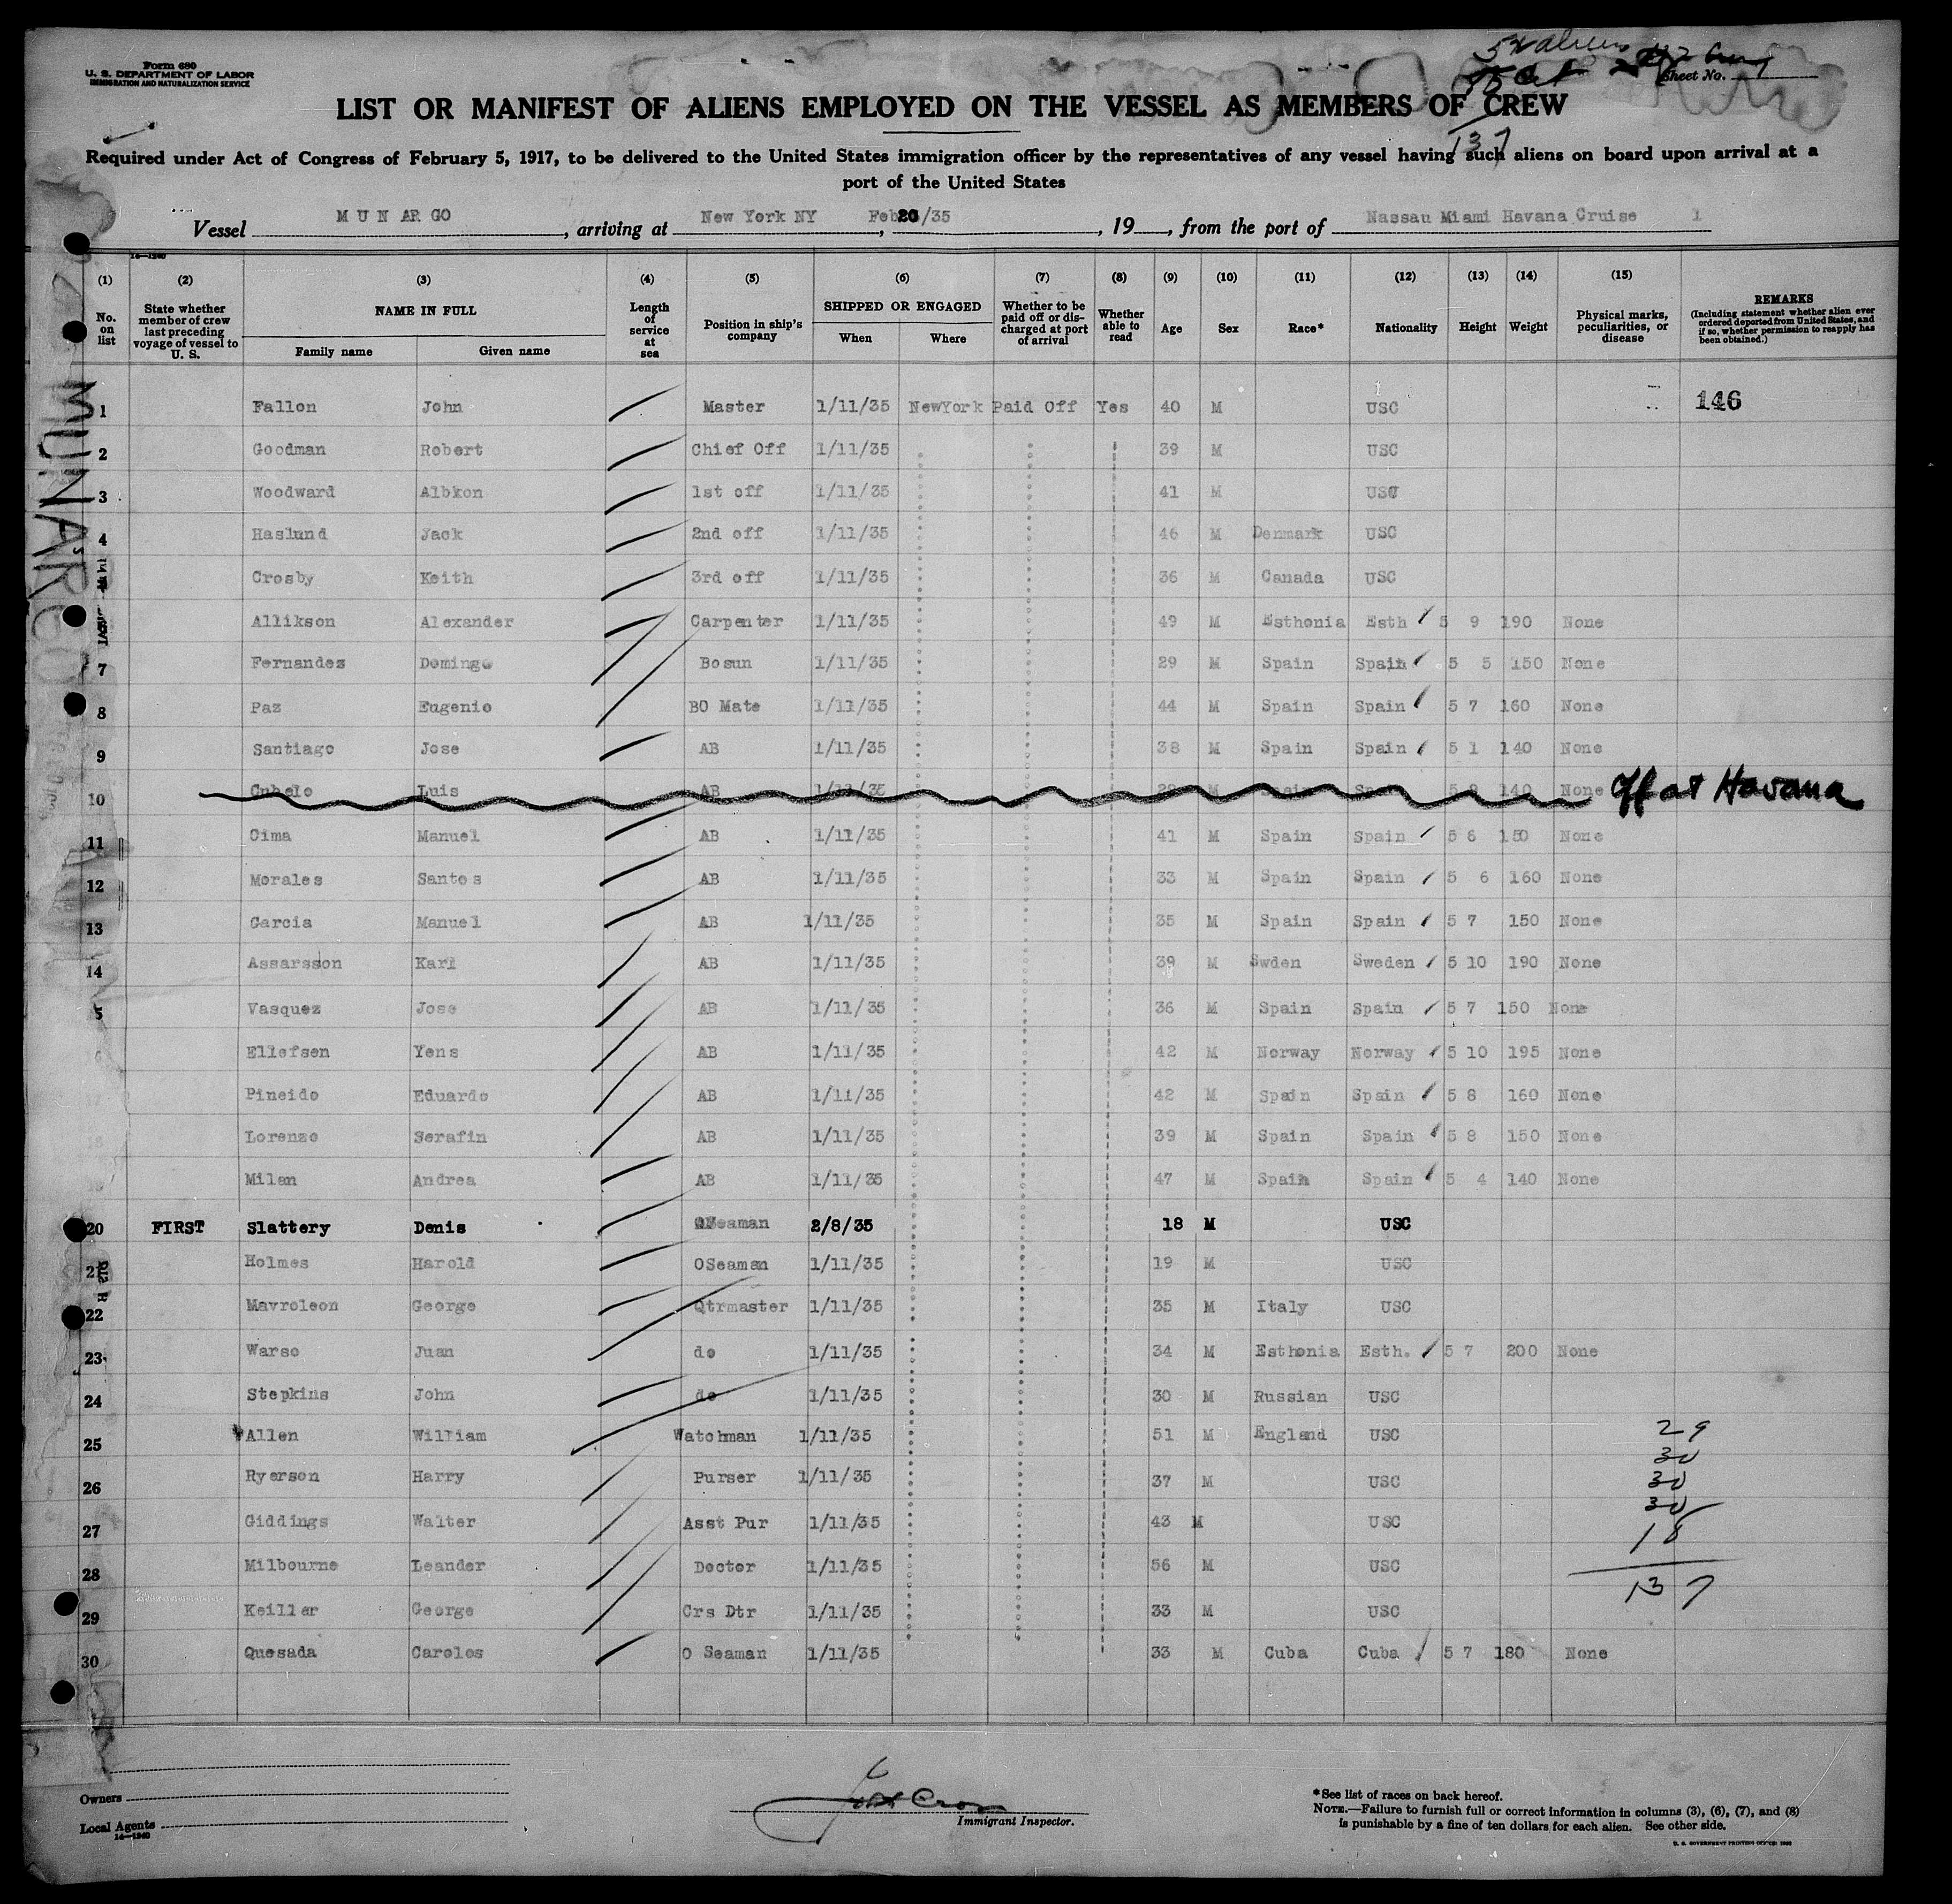 Form 680
U. S. DEPARTMENT OF LABOR
IMMIGRATION AND NATURALIZATION SERVICE
54 aliens
Sheet No.
LIST OR MANIFEST OF ALIENS EMPLOYED ON THE VESSEL AS MEMBERS OF CREW
137
Required under Act of Congress of February 5, 1917, to be delivered to the United States immigration officer by the representatives of any vessel having such aliens on board upon arrival at a
port of the United States
Vessel MUNARGO, arriving at New York NY, Feb 26/35, 19, from the port of Nassau Miami Havana Cruise 1
14—1240
(1) (2) (3) (4) (5) (6) (7) (8) (9) (10) (11) (12) (13) (14) (15)
No. on list
State whether member of crew last preceding voyage of vessel to U. S.
NAME IN FULL
Family name Given name
Length of service at sea
Position in ship's company
SHIPPED OR ENGAGED
When Where
Whether to be paid off or discharged at port of arrival
Whether able to read
Age Sex Race* Nationality Height Weight
Physical marks, peculiarities, or disease
REMARKS
(Including statement whether alien ever ordered deported from United States, and if so, whether permission to reapply has been obtained.)
MUNARGO
1 Fallon John Master 1/11/35 NewYork Paid Off Yes 40 M USC 146
2 Goodman Robert Chief Off 1/11/35 39 M USC
3 Woodward Albkon 1st off 1/11/35 41 M USC
4 Haslund Jack 2nd off 1/11/35 46 M Denmark USC
Crosby Keith 3rd off 1/11/35 36 M Canada USC
Allikson Alexander Carpenter 1/11/35 49 M Esthonia Esth 5 9 190 None
7 Fernandez Domingo Bosun 1/11/35 29 M Spain Spain 5 5 150 None
8 Paz Eugenio BO Mate 1/11/35 44 M Spain Spain 5 7 160 None
9 Santiago Jose AB 1/11/35 38 M Spain Spain 5 1 140 None
10 Cubelo Luis AB 1/11/35 29 M Spain Spain 5 8 140 None Off at Havana
11 Cima Manuel AB 1/11/35 41 M Spain Spain 5 6 150 None
12 Morales Santos AB 1/11/35 33 M Spain Spain 5 6 160 None
13 Garcia Manuel AB 1/11/35 35 M Spain Spain 5 7 150 None
14 Assarsson Karl AB 1/11/35 39 M Swden Sweden 5 10 190 None
5 Vasquez Jose AB 1/11/35 36 M Spain Spain 5 7 150 None
6 Ellefsen Yens AB 1/11/35 42 M Norway Norway 5 10 195 None
Pineido Eduardo AB 1/11/35 42 M Spain Spain 5 8 160 None
18 Lorenzo Serafin AB 1/11/35 39 M Spain Spain 5 8 150 None
Milan Andrea AB 1/11/35 47 M Spain Spain 5 4 140 None
20 FIRST Slattery Denis OSeaman 2/8/35 18 M USC
2 Holmes Harold OSeaman 1/11/35 19 M USC
22 Mavroleon George Qtrmaster 1/11/35 35 M Italy USC
23 Warso Juan do 1/11/35 34 M Esthonia Esth. 5 7 200 None
24 Stepkins John do 1/11/35 30 M Russian USC
25 Allen William Watchman 1/11/35 51 M England USC
26 Ryerson Harry Purser 1/11/35 37 M USC
27 Giddings Walter Asst Pur 1/11/35 43 M USC
28 Milbourne Leander Doctor 1/11/35 56 M USC
29 Keillar George Crs Dtr 1/11/35 33 M USC
30 Quesada Carolos O Seaman 1/11/35 33 M Cuba Cuba 5 7 180 None
29
30
30
30
18
137
Owners
Local Agents
14—1240
Immigrant Inspector.
*See list of races on back hereof.
NOTE.—Failure to furnish full or correct information in columns (3), (6), (7), and (8)
is punishable by a fine of ten dollars for each alien. See other side.
U. S. GOVERNMENT PRINTING OFFICE: